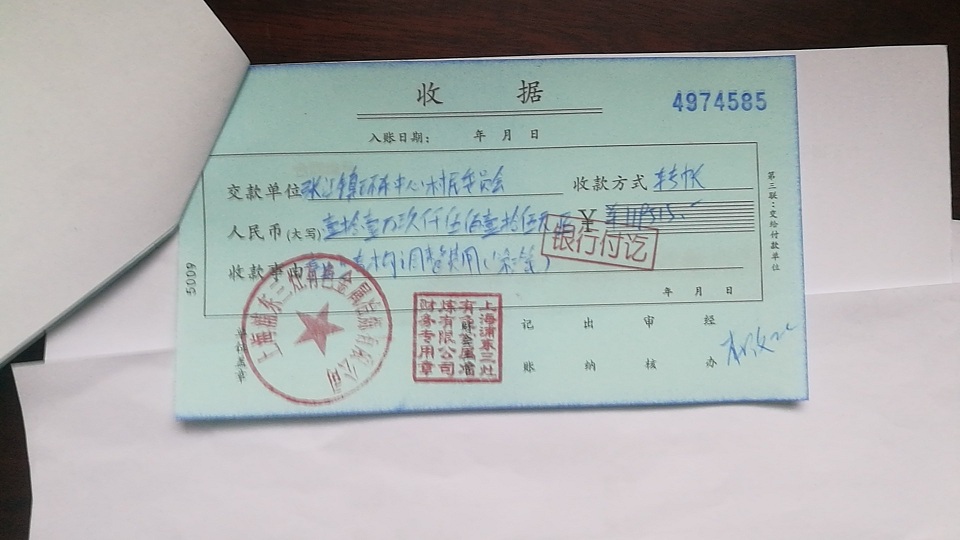 收 据
4974585
入账日期： 年 月 日
交款单位 张江镇环东中心村民委员会 收款方式 转帐
人民币(大写) 壹拾壹万玖仟伍佰壹拾伍元 ￥ 119515.-
银行付讫
收款事由 结构调整费用
年 月 日
第三联：交给付款单位
5009
单位盖章
上海浦东三灶有色金属熔炼有限公司
上海浦东三灶
有色金属熔
炼有限公司
财务专用章
记账 出纳 审核 经办